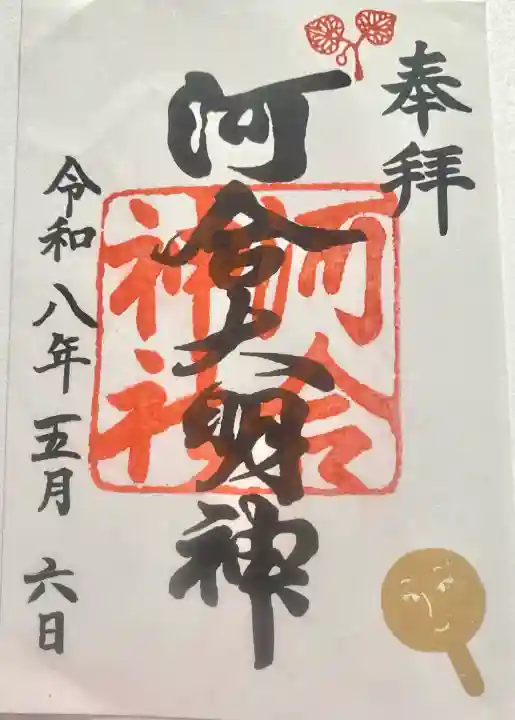 奉拝
河合大明神
河合
神社
令和八年五月六日